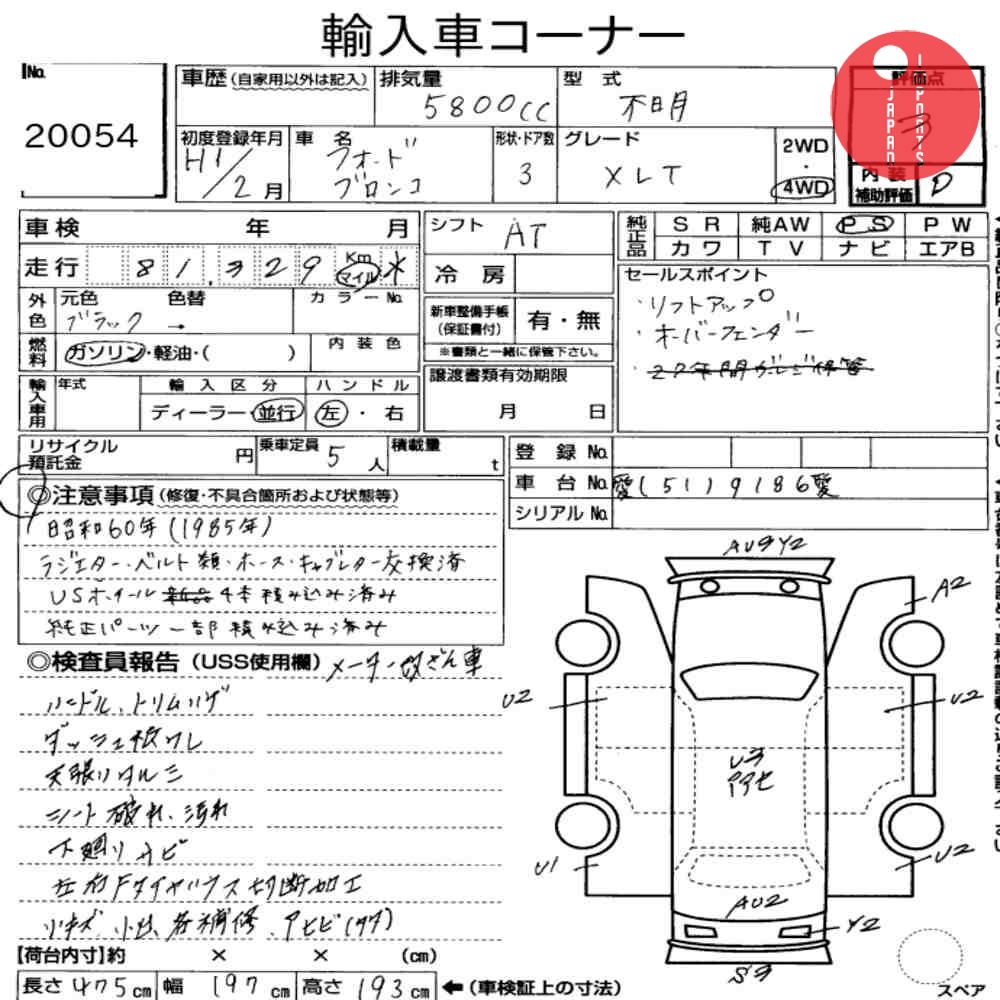 輸入車コーナー
No. 20054
車歴(自家用以外は記入) 排気量 5800cc 型 式 不明
評価点 3
JAPAN IMPORTS
初度登録年月 H1/2月 車 名 フォード ブロンコ 形状・ドア数 3 グレード XLT 2WD・4WD
内装補助評価 D
車検 年 月 シフト AT 純正品 SR 純AW PS PW
カワ TV ナビ エアB
走行 81,329 Km マイル * 冷 房
セールスポイント
・リフトアップ
・オーバーフェンダー
外色 元色 ブラック 色替 → カラーNo.
新車整備手帳(保証書付) 有・無
※書類と一緒に保管下さい。
燃料 ガソリン・軽油・( ) 内装色
輸入車用 年式 輸入区分 ハンドル
ディーラー・並行 左・右
譲渡書類有効期限
月 日
リサイクル預託金 円 乗車定員 5人 積載量 t
登 録 No.
車 台 No. 愛(51)9186愛
シリアル No.
◎注意事項(修復・不具合箇所および状態等)
昭和60年(1985年)
ラジエター・ベルト類・ホース・キャブレター交換済
USホイール 4本積み込み済み
純正パーツ一部積み込み済み
◎検査員報告(USS使用欄) メーター改ざん車
ハンドル、トリムハゲ
ダッシュ板ワレ
天張りタルミ
シート破れ、汚れ
下廻りサビ
左右Fタイヤハウス切断加工
小キズ
AU2
A2
U2
U2
U1
U2
AU2
Y2
【荷台内寸】約 × × (cm)
長さ 475cm 幅 197cm 高さ 193cm ←(車検証上の寸法)
スペア